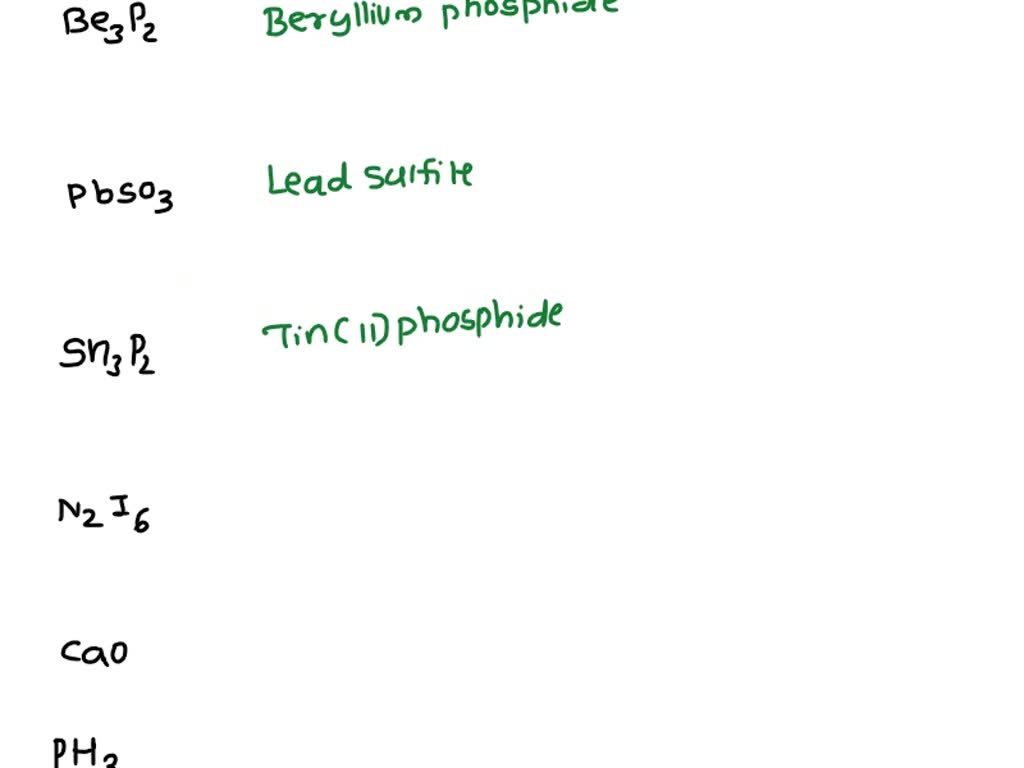 Be₃P₂ Beryllium phosphide
PbSO₃ Lead sulfite
Sn₃P₂ Tin(II) phosphide
N₂I₆
CaO
PH₃